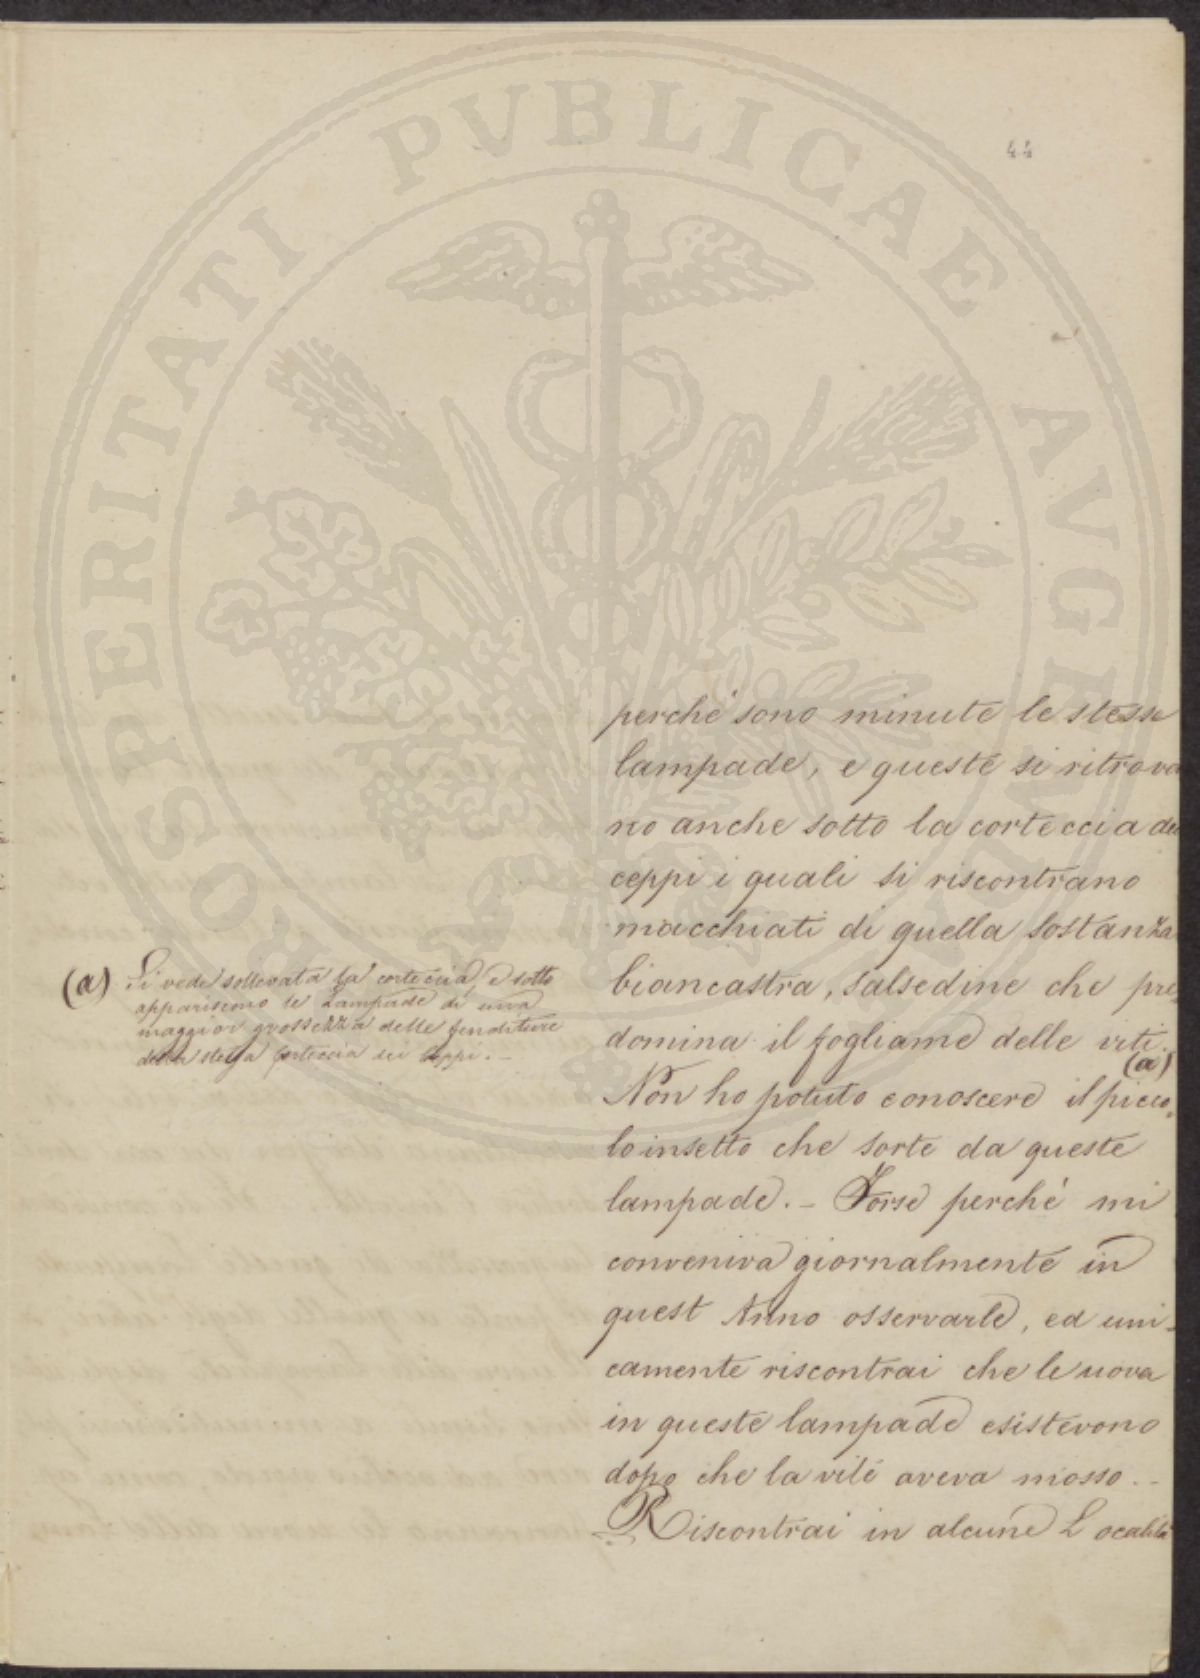 PROSPERITATI PVBLICAE AVGENDAE
44
perché sono minute le stesse
lampade, e queste si ritrova
no anche sotto la corteccia dei
ceppi i quali si riscontrano
macchiati di quella sostanza
biancastra, salsedine che pre-
domina il fogliame delle viti.
(a)
Non ho potuto conoscere il picco-
lo insetto che sorte da queste
lampade. - Forse perché mi
conveniva giornalmente in
quest Anno osservarle, ed uni-
camente riscontrai che le uova
in queste lampade esistevono
dopo che la vite aveva mosso. -
Riscontrai in alcune Località
(a) Si vede sollevata la corteccia, e sotto
appariscono le Lampade di una
maggior grossezza delle fenditure
della stessa corteccia dei Ceppi. -